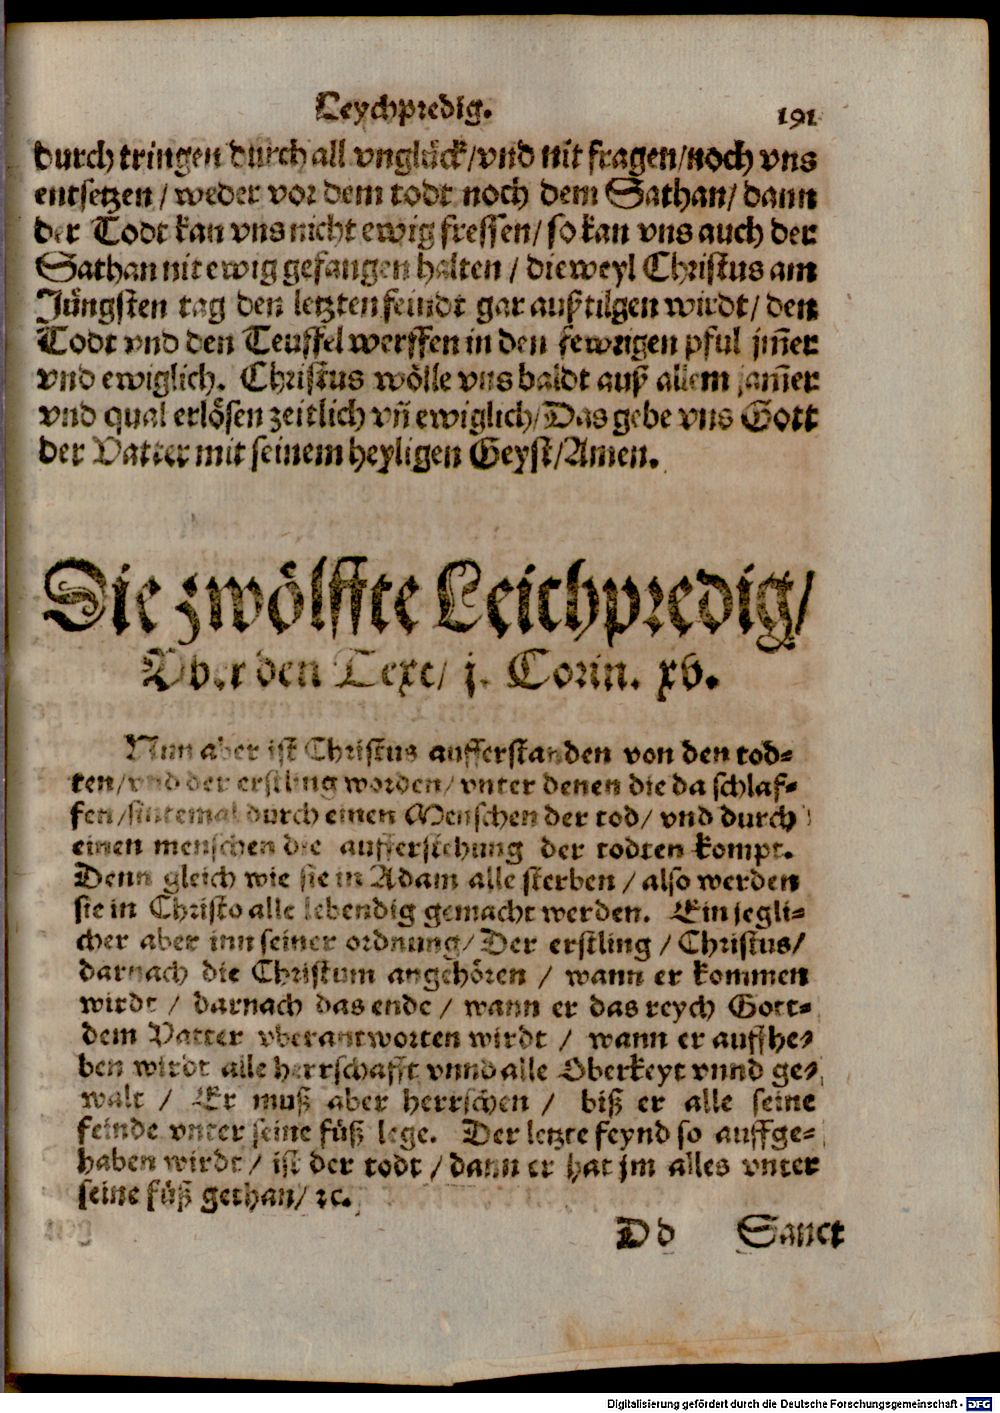 Leychpredig. 191
durch tringen durch all vnglück/vnd nit fragen/noch vns
entsetzen / weder vor dem todt noch dem Sathan/ dann
der Todt kan vns nicht ewig fressen/ so kan vns auch der
Sathan nit ewig gefangen halten / dieweyl Christus am
Jüngsten tag den letzten feindt gar außtilgen wirdt/ den
Todt vnd den Teuffel werffen in den fewrigen pful jm̃er
vnd ewiglich. Christus wölle vns baldt auß allem jam̃er
vnd qual erlösen zeitlich vñ ewiglich/Das gebe vns Gott
der Vatter mit seinem heyligen Geyst/Amen.
Die zwölffte Leichpredig/
Vber den Text/ j. Corin. xv.
Nun aber ist Christus aufferstanden von den tod-
ten/vnd der erstling worden/ vnter denen die da schlaf-
fen/sintemal durch einen Menschen der tod/ vnd durch
einen menschen die aufferstehung der todten kompt.
Denn gleich wie sie in Adam alle sterben / also werden
sie in Christo alle lebendig gemacht werden. Ein jegli-
cher aber inn seiner ordnung/ Der erstling / Christus/
darnach die Christum angehören / wann er kommen
wirdt / darnach das ende / wann er das reych Gott-
dem Vatter vberantworten wirdt / wann er auffhe-
ben wirdt alle herrschafft vnnd alle Oberkeyt vnnd ge-
walt / Er muß aber herrschen / biß er alle seine
feinde vnter seine füß lege. Der letzte feynd so auffge-
haben wirdt / ist der todt / dann er hat jm alles vnter
seine füß gethan/ ꝛc.
Dd Sanct
Digitalisierung gefördert durch die Deutsche Forschungsgemeinschaft - DFG